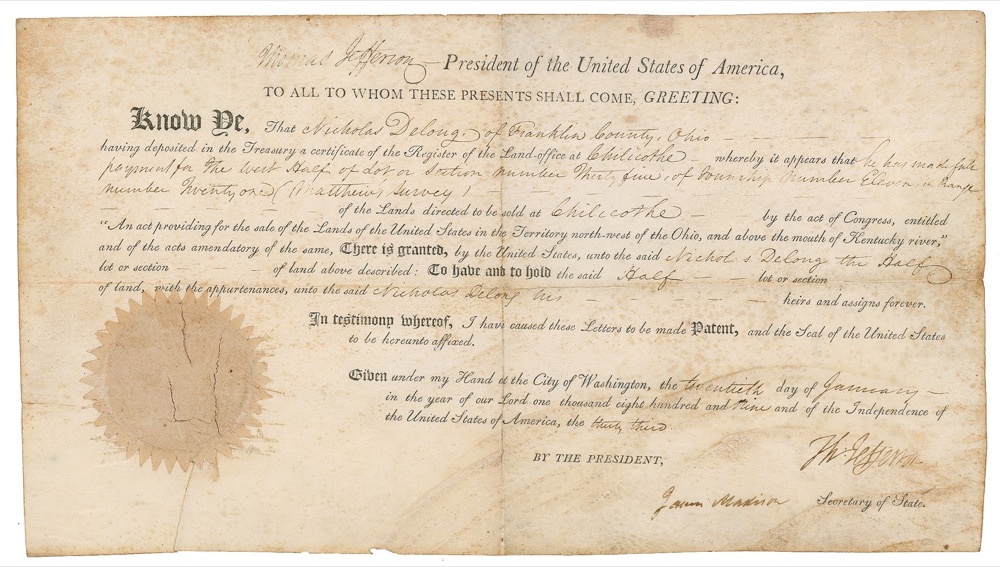 Thomas Jefferson President of the United States of America,
TO ALL TO WHOM THESE PRESENTS SHALL COME, GREETING:
Know Ye, That Nicholas Delong, of Franklin County, Ohio
having deposited in the Treasury a certificate of the Register of the Land-office at Chilicothe whereby it appears that he has made full
payment for the West Half of lot or Section number Thirty five, of Township number Eleven, in Range
number Twenty one (Matthews Survey)
of the Lands directed to be sold at Chilicothe by the act of Congress, entitled
“An act providing for the sale of the Lands of the United States in the Territory north-west of the Ohio, and above the mouth of Kentucky river,”
and of the acts amendatory of the same, There is granted, by the United States, unto the said Nicholas Delong the Half
lot or section of land above described: To have and to hold the said Half lot or section
of land, with the appurtenances, unto the said Nicholas Delong his heirs and assigns forever.
In testimony whereof, I have caused these Letters to be made Patent, and the Seal of the United States
to be hereunto affixed.
Given under my Hand at the City of Washington, the twentieth day of January
in the year of our Lord one thousand eight hundred and Nine and of the Independence of
the United States of America, the thirty third
BY THE PRESIDENT,
Th: Jefferson
James Madison Secretary of State.